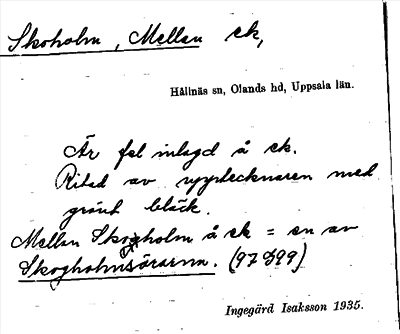 Skoholm, Mellan ek,
Hållnäs sn, Olands hd, Uppsala län.
Är fel inlagd å ek.
Ritad av upptecknaren med
grönt bläck.
Mellan Skogholm å ek = en av
Skogholmsörarna. (97899)
Ingegärd Isaksson 1935.